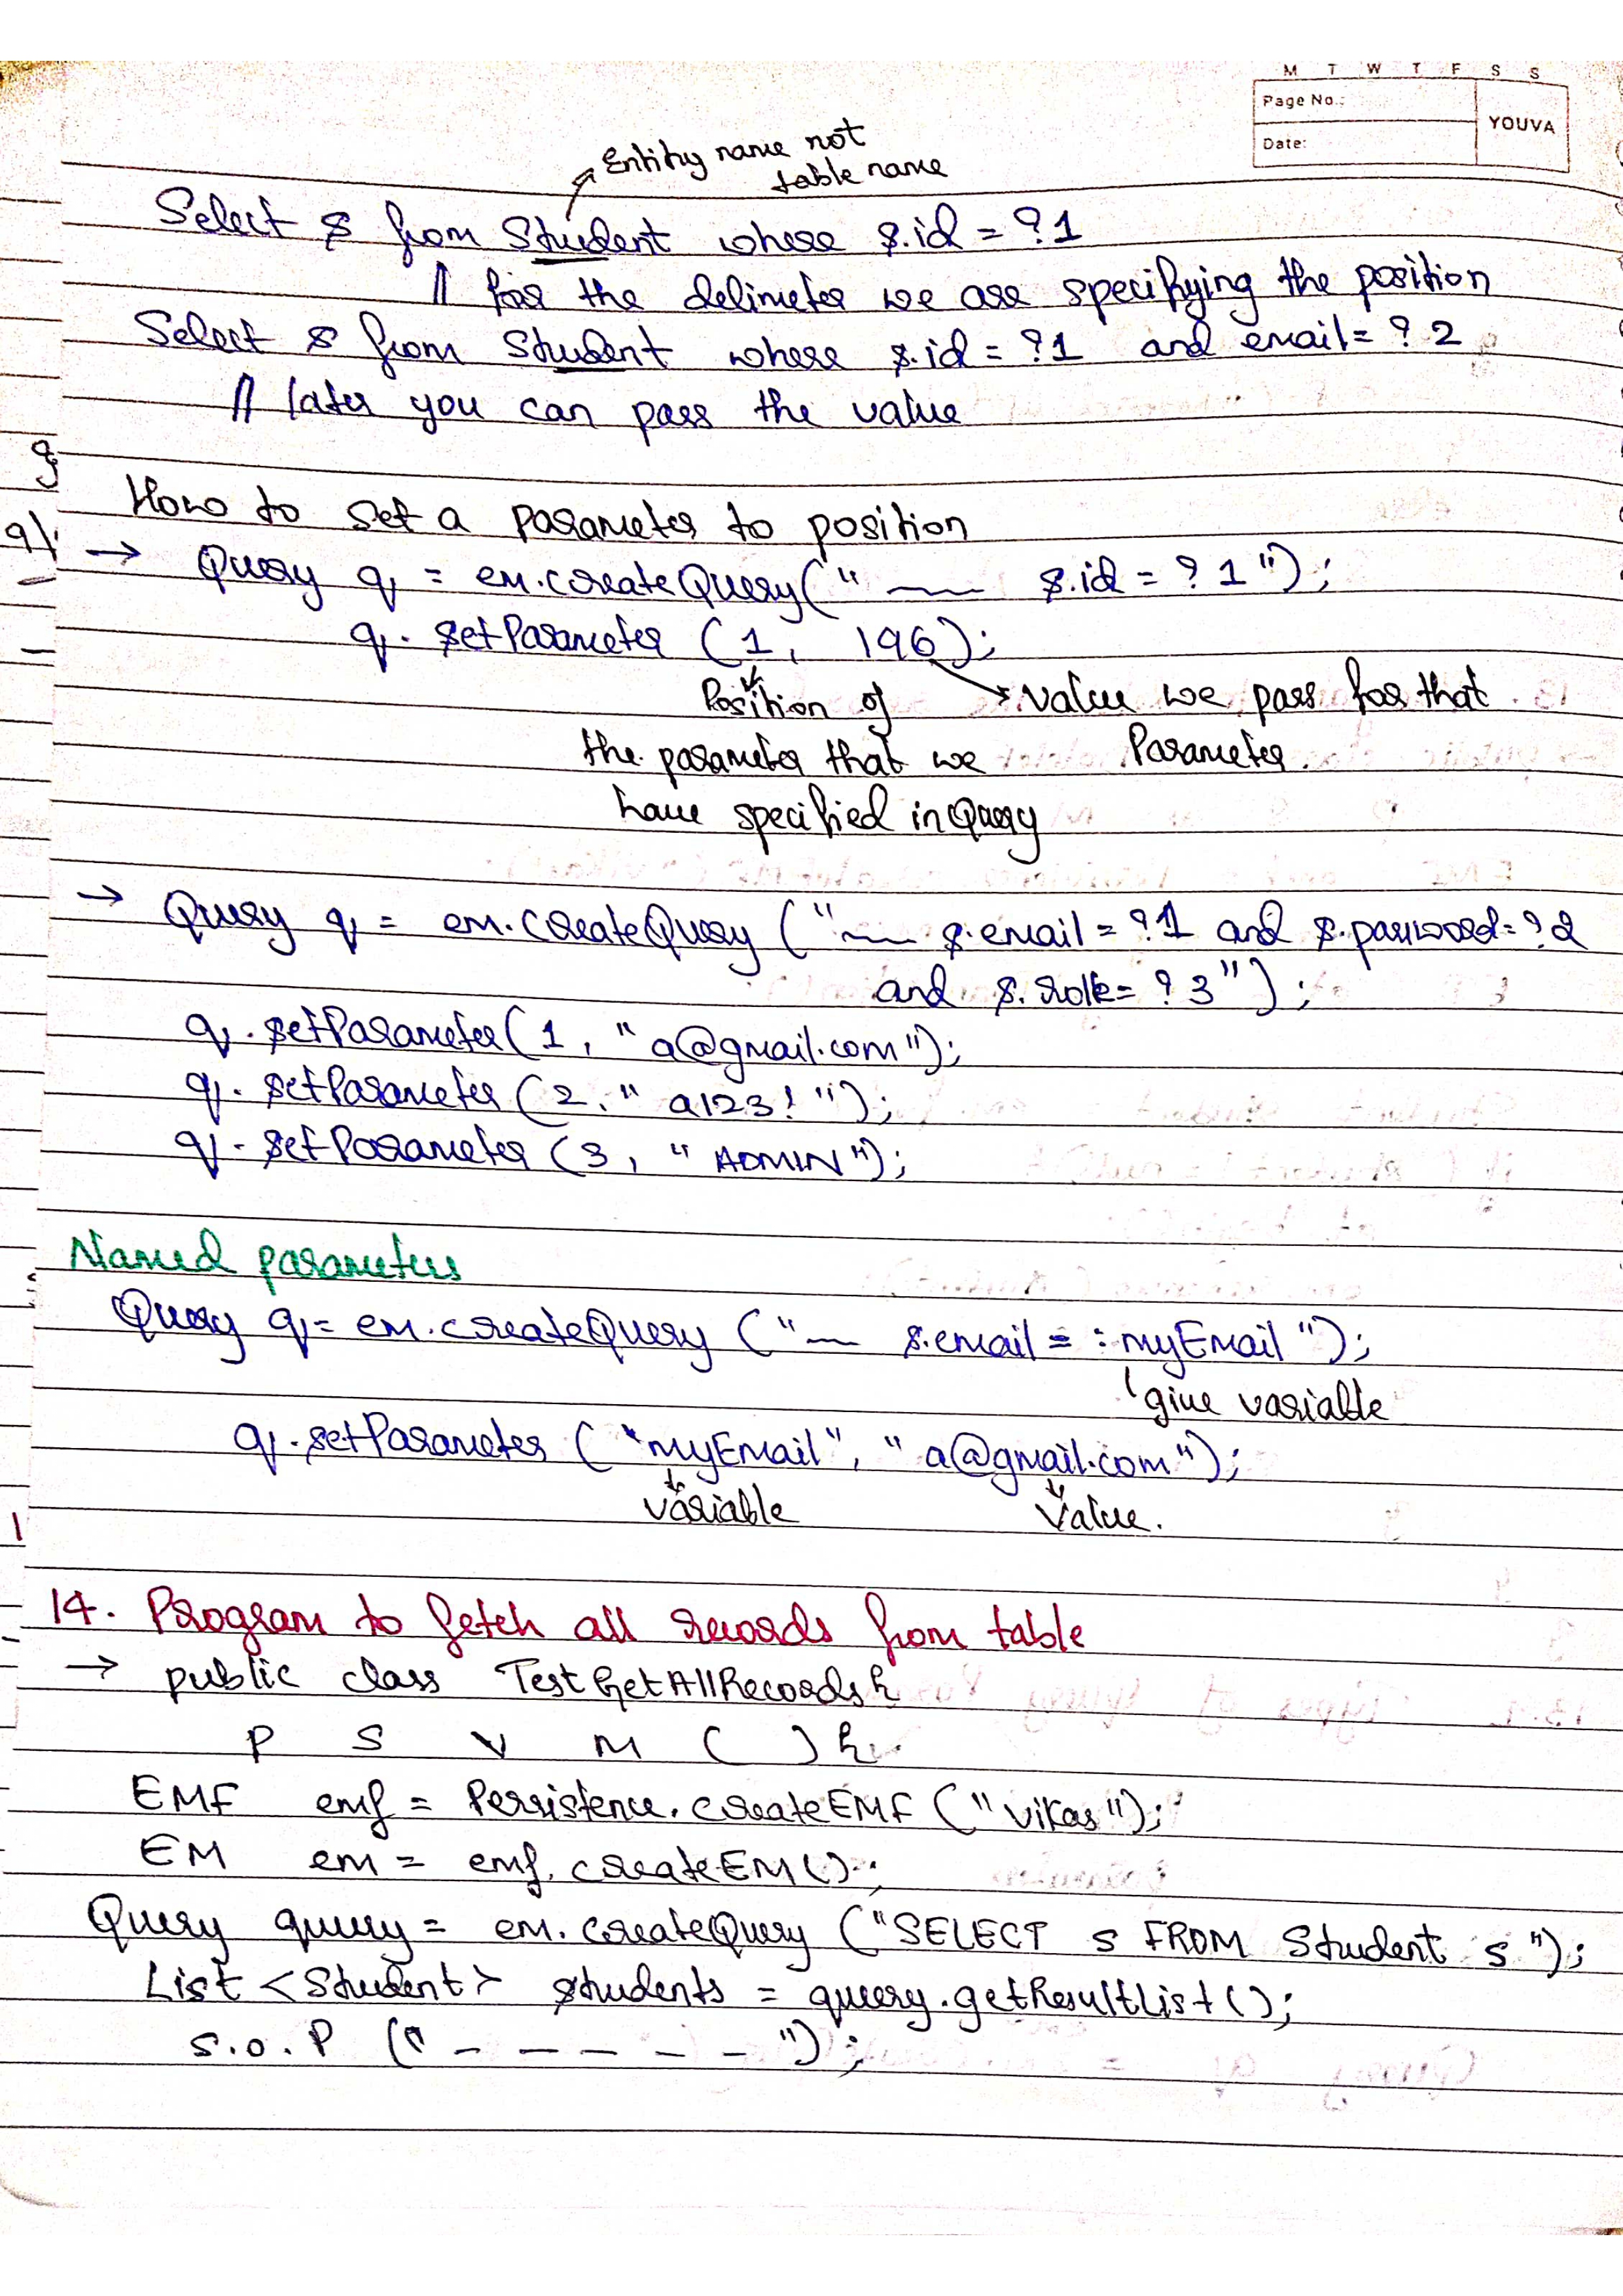 M T W T F S S
Page No.:
YOUVA
Date:
Entity name not
table name
Select s from Student where s.id = ?1
// for the delimeter we are specifying the position
Select s from Student where s.id = ?1 and email = ? 2
// later you can pass the value
How to set a parameter to position
→ Query q = em.createQuery(" ___ s.id = ? 1 ");
q. setParameter (1, 196);
Position of → value we pass for that
the parameter that we Parameter.
have specified in Query
→ Query q = em.createQuery (" ___ s.email = ?1 and s.password = ?2
and s.role = ? 3 ");
q. setParameter (1, "a@gmail.com");
q. setParameter (2, " a123! ");
q. setParameter (3, " ADMIN ");
Named parameters
Query q = em.createQuery (" __ s.email = :myEmail ");
give variable
q.setParameter ("myEmail", " a@gmail.com");
variable Value.
14. Program to fetch all records from table
→ public class TestGetAllRecords {
P S V M ( ) {
EMF emf = Persistence.createEMF ("vikas");
EM em = emf.createEM();
Query query = em.createQuery ("SELECT s FROM Student s ");
List <Student> students = query.getResultList();
S.o.P (" - - - - - ");